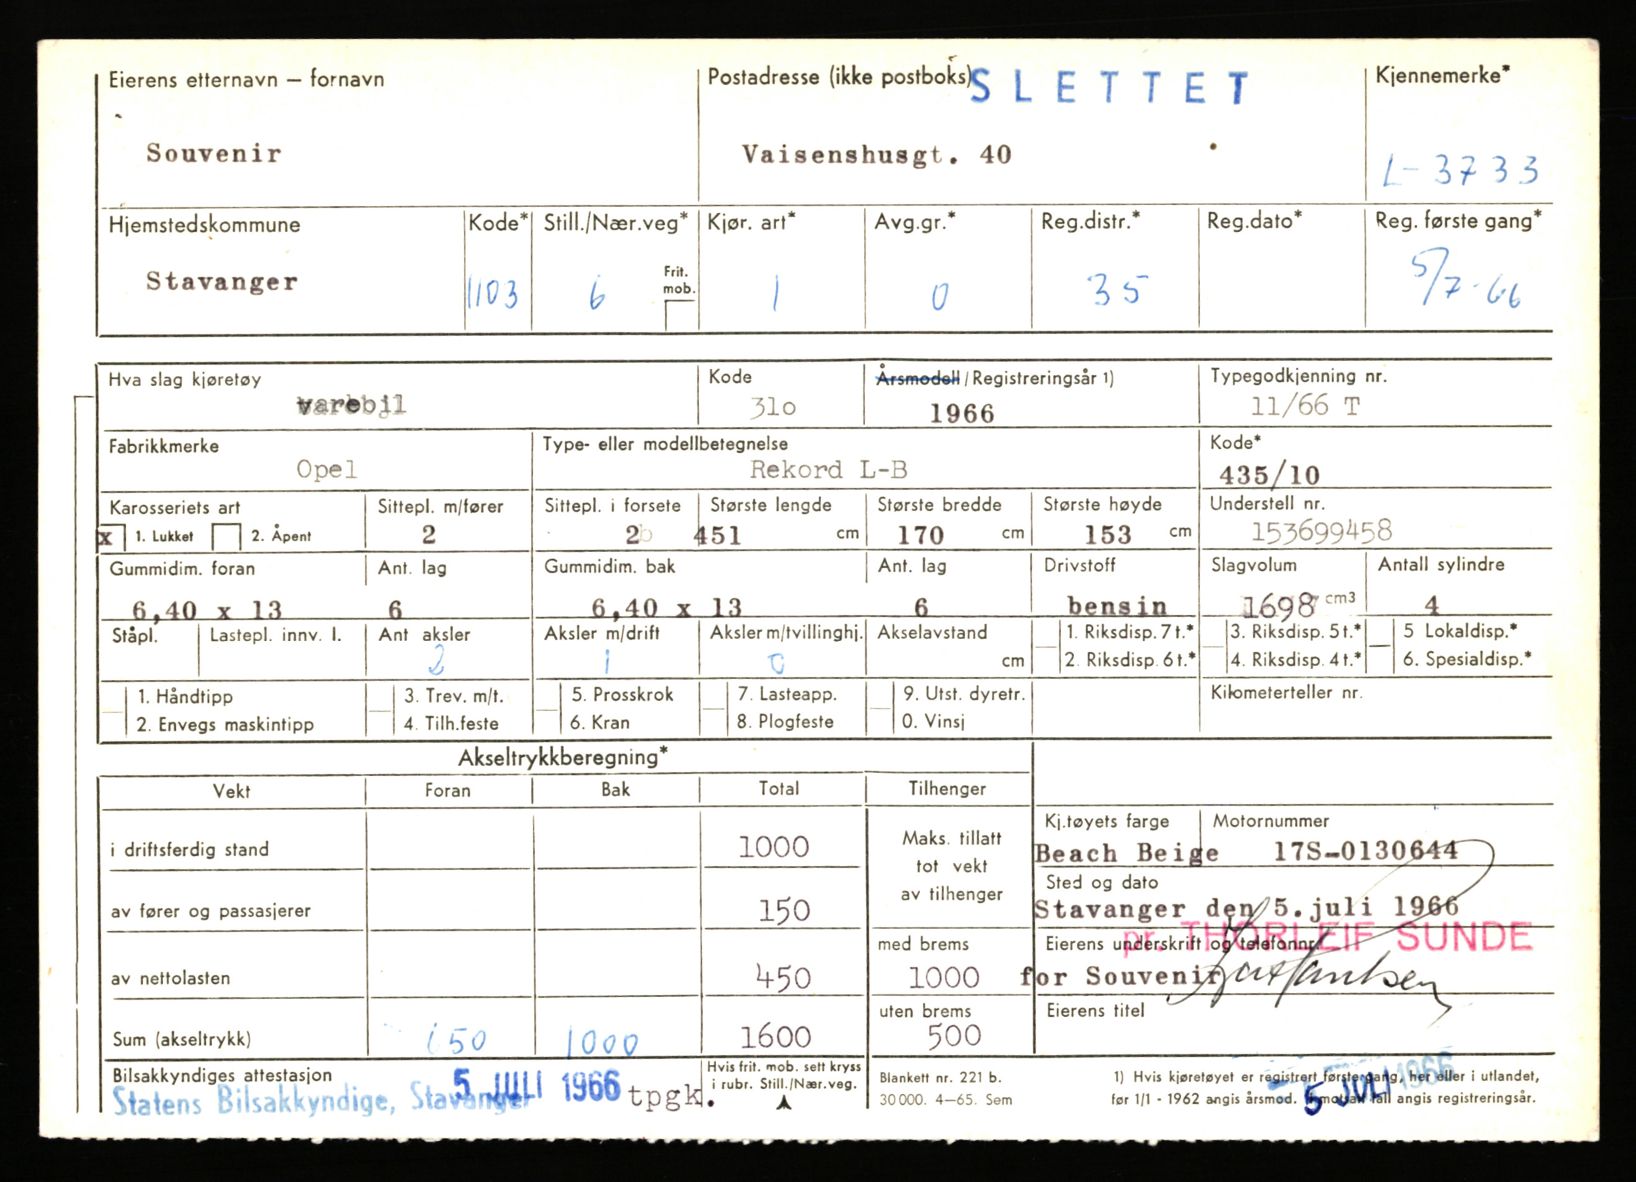 Eierens etternavn – fornavn Postadresse (ikke postboks) SLETTET Kjennemerke*
Souvenir Vaisenshusgt. 40 L-3733
Hjemstedskommune Kode* Still./Nær.veg* Kjør. art* Avg.gr.* Reg.distr.* Reg.dato* Reg. første gang*
Stavanger 1103 6 Frit. mob. 1 0 35 5/7-66
Hva slag kjøretøy Kode Årsmodell / Registreringsår 1) Typegodkjenning nr.
varebil 31o 1966 11/66 T
Fabrikkmerke Type- eller modellbetegnelse Kode*
Opel Rekord L-B 435/10
Karosseriets art Sittepl. m/fører Sittepl. i forsete Største lengde Største bredde Største høyde Understell nr.
x 1. Lukket 2. Åpent 2 2 451 cm 170 cm 153 cm 153699458
Gummidim. foran Ant. lag Gummidim. bak Ant. lag Drivstoff Slagvolum Antall sylindre
6,40 x 13 6 6,40 x 13 6 bensin 1698 cm3 4
Ståpl. Lastepl. innv. l. Ant aksler Aksler m/drift Aksler m/tvillinghj. Akselavstand 1. Riksdisp. 7 t.* 3. Riksdisp. 5 t.* 5 Lokaldisp.*
2 1 0 cm 2. Riksdisp. 6 t.* 4. Riksdisp. 4 t.* 6. Spesialdisp.*
1. Håndtipp 3. Trev. m/t. 5. Prosskrok 7. Lasteapp. 9. Utst. dyretr. Kilometerteller nr.
2. Envegs maskintipp 4. Tilh.feste 6. Kran 8. Plogfeste 0. Vinsj
Akseltrykkberegning*
Vekt Foran Bak Total Tilhenger
Kj.tøyets farge Motornummer
i driftsferdig stand 1000 Maks. tillatt tot vekt av tilhenger Beach Beige 17S-0130644
Sted og dato
av fører og passasjerer 150 Stavanger den 5.juli 1966
pr. THORLEIF SUNDE
med brems Eierens underskrift og telefonnr.
av nettolasten 450 1000 for Souvenir
uten brems Eierens titel
Sum (akseltrykk) 1000 1600 500
Bilsakkyndiges attestasjon 5 JULI 1966 tpgk. Hvis frit. mob. sett kryss i rubr. Still./Nær.veg. Blankett nr. 221 b. 1) Hvis kjøretøyet er registrert første gang, her eller i utlandet,
Statens Bilsakkyndige, Stavanger 30 000. 4–65. Sem før 1/1 - 1962 angis årsmod. I motsatt fall angis registreringsår.
5 JULI 1966